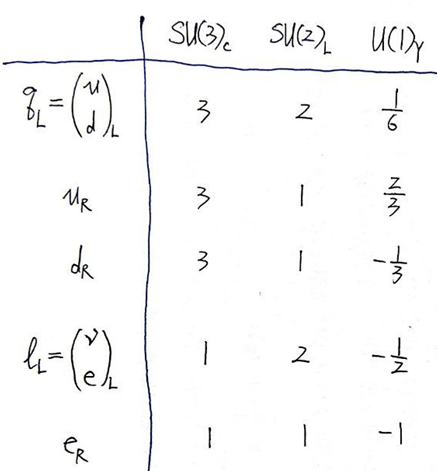 SU(3)c SU(2)L U(1)Y
qL = (u d)L 3 2 1/6
uR 3 1 2/3
dR 3 1 -1/3
lL = (ν e)L 1 2 -1/2
eR 1 1 -1